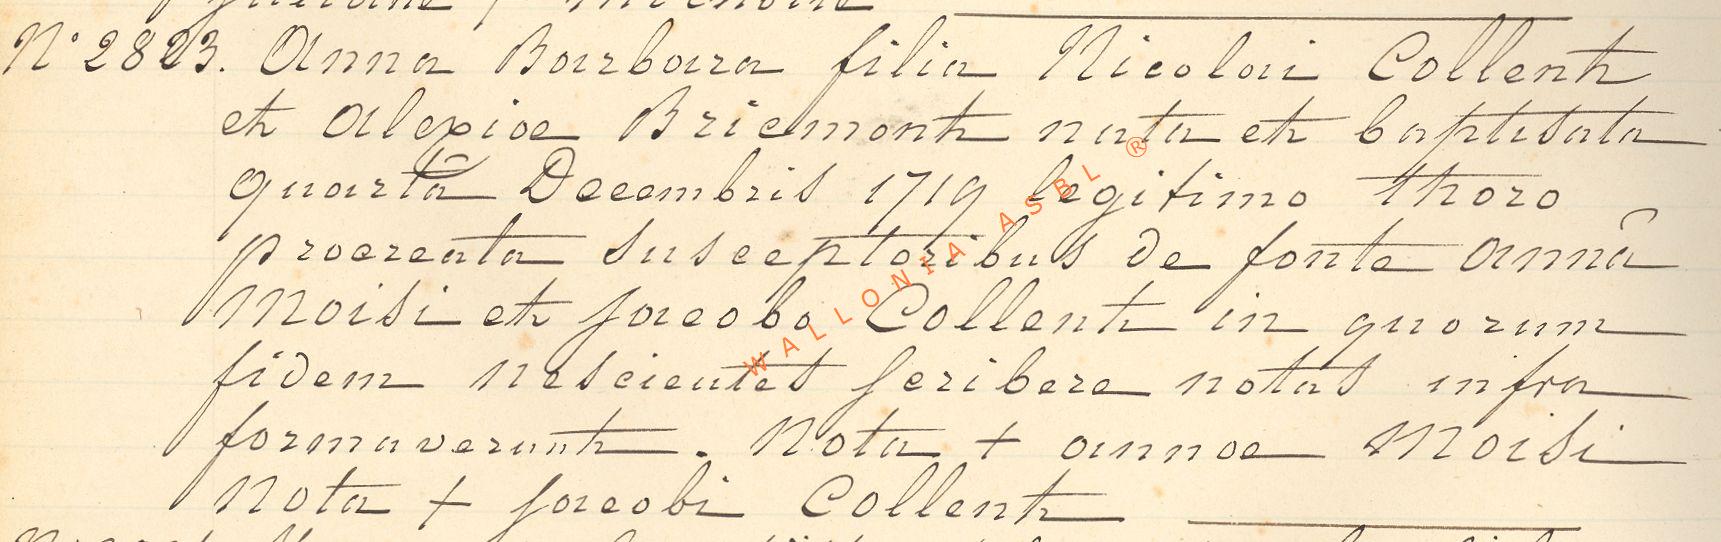 N° 2823. Anna Barbara filia Nicolai Collent
et Alexiae Briemont nata et baptisata
quartâ Decembris 1719 legitimo thoro
procreata susceptoribus de fonte annâ
Moisi et Jacobo Collent in quorum
fidem nescientes scribere notas infra
formaverunt. Nota + annae Moisi
Nota + Jacobi Collent
WALLONIA ASBL ®